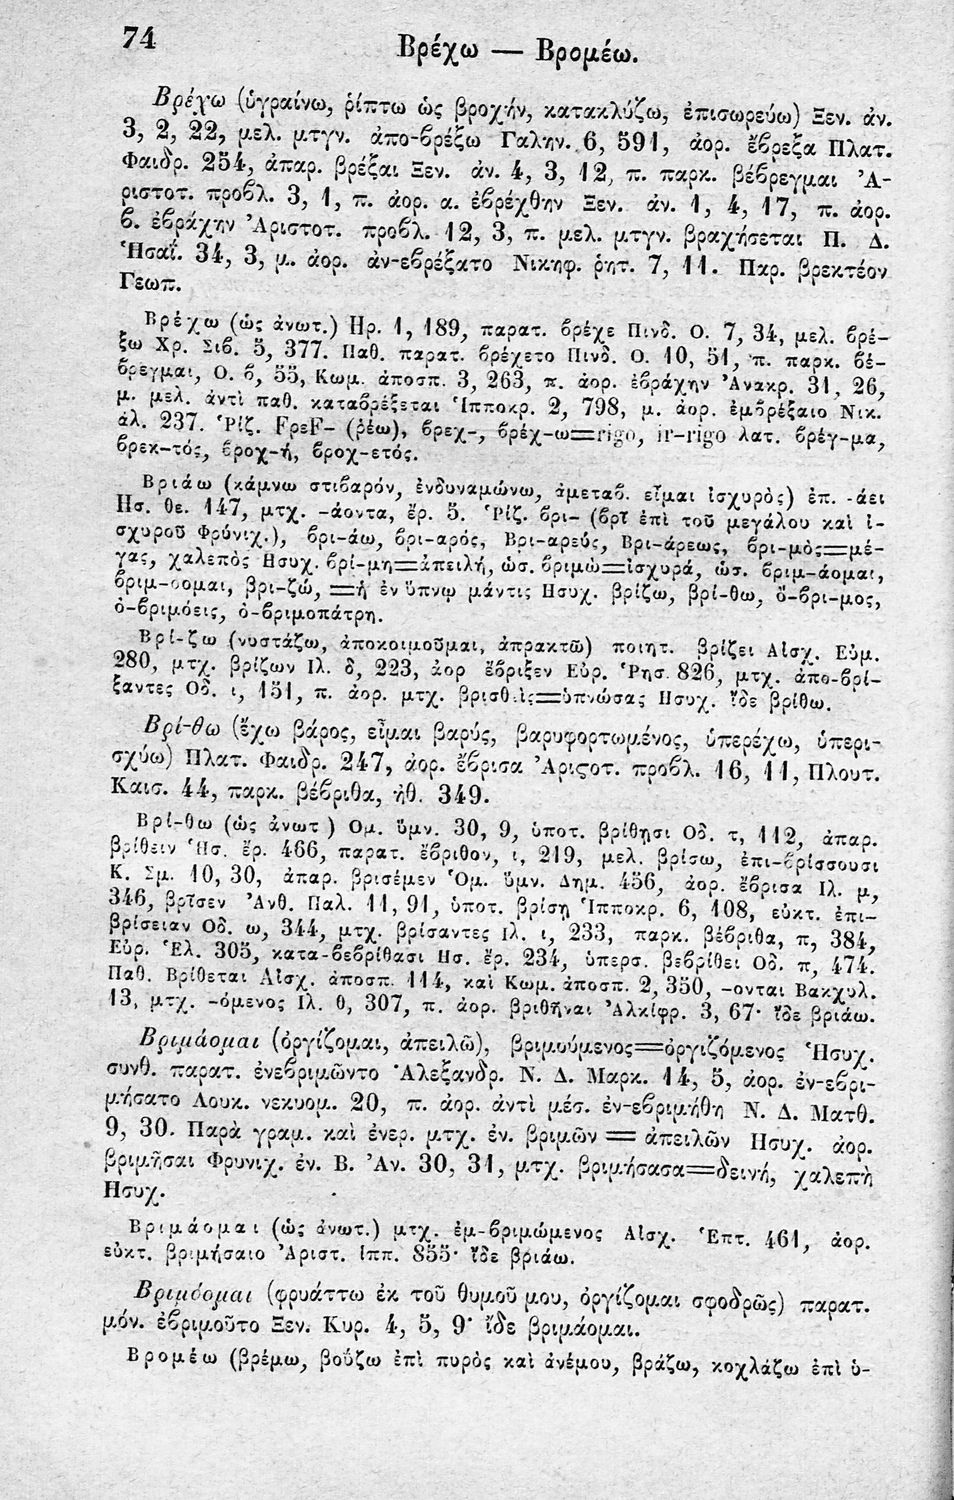 74
Βρέχω — Βρομέω.
Βρέχω (ὑγραίνω, ῥίπτω ὡς βροχήν, κατακλύζω, ἐπισωρεύω) Ξεν. ἀν.
3, 2, 22, μελ. μτγν. ἀπο-βρέξω Γαλην. 6, 591, ἀορ. ἔβρεξα Πλατ.
Φαιδρ. 254, ἀπαρ. βρέξαι Ξεν. ἀν. 4, 3, 12, π. παρκ. βέβρεγμαι Ἀ-
ριστοτ. προβλ. 3, 1, π. ἀορ. α. ἐβρέχθην Ξεν. ἀν. 1, 4, 17, π. ἀορ.
β. ἐβράχην Ἀριστοτ. προβλ. 12, 3, π. μελ. μτγν. βραχήσεται Π. Δ.
Ἡσαΐ. 34, 3, μ. ἀορ. ἀν-εβρέξατο Νικηφ. ῥητ. 7, 11. Παρ. βρεκτέον
Γεωπ.
Βρέχω (ὡς ἀνωτ.) Ηρ. 1, 189, παρατ. βρέχε Πινδ. Ο. 7, 34, μελ. βρέ-
ξω Χρ. Σιβ. 5, 377. Παθ. παρατ. βρέχετο Πινδ. Ο. 10, 51, π. παρκ. βέ-
βρεγμαι, Ο. 6, 55, Κωμ. ἀποσπ. 3, 263, π. ἀορ. ἐβράχην Ἀνακρ. 31, 26,
μ. μελ. ἀντὶ παθ. καταβρέξεται Ἱπποκρ. 2, 798, μ. ἀορ. ἐμβρέξαιο Νικ.
ἀλ. 237. Ῥίζ. ϜρεϜ- (ῥέω), βρεχ-, βρέχ-ω=rigo, ir-rigo λατ. βρέγ-μα,
βρεκ-τός, βροχ-ή, βροχ-ετός.
Βριάω (κάμνω στιβαρόν, ἐνδυναμώνω, ἀμεταβ. εἶμαι ἰσχυρὸς) ἐπ. -άει
Ησ. θε. 447, μτχ. -άοντα, ἔρ. 5. Ῥίζ. βρι- (βρῖ ἐπὶ τοῦ μεγάλου καὶ ἰ-
σχυροῦ Φρύνιχ.), βρι-άω, βρι-αρός, Βρι-αρεύς, Βρι-άρεως, βρι-μὸς=μέ-
γας, χαλεπὸς Ησυχ. βρί-μη=ἀπειλή, ὡσ. βριμὼ=ἰσχυρά, ὡσ. βριμ-άομαι,
βριμ-όομαι, βρι-ζώ, =ἡ ἐν ὕπνῳ μάντις Ησυχ. βρίζω, βρί-θω, ὄ-βρι-μος,
ὀ-βριμόεις, ὀ-βριμοπάτρη.
Βρί-ζω (νυστάζω, ἀποκοιμοῦμαι, ἀπρακτῶ) ποιητ. βρίζει Αἰσχ. Εὐμ.
280, μτχ. βρίζων Ιλ. δ, 223, ἀορ ἔβριξεν Εὐρ. Ῥησ. 826, μτχ. ἀπο-βρί-
ξαντες Οδ. ι, 151, π. ἀορ. μτχ. βρισθεὶς=ὑπνώσας Ησυχ. Ἴδε βρίθω.
Βρί-θω (ἔχω βάρος, εἶμαι βαρύς, βαρυφορτωμένος, ὑπερέχω, ὑπερι-
σχύω) Πλατ. Φαιδρ. 247, ἀορ. ἔβρισα Ἀριστοτ. προβλ. 16, 11, Πλουτ.
Καισ. 44, παρκ. βέβριθα, ἠθ. 349.
Βρί-θω (ὡς ἀνωτ ) Ομ. ὕμν. 30, 9, ὑποτ. βρίθησι Οδ. τ, 112, ἀπαρ.
βρίθειν Ἡσ. ἔρ. 466, παρατ. ἔβριθον, ι, 219, μελ. βρίσω, ἐπι-βρίσσουσι
Κ. Σμ. 10, 30, ἀπαρ. βρισέμεν Ὁμ. ὕμν. Δημ. 456, ἀορ. ἔβρισα Ιλ. μ,
346, βρῖσεν Ἀνθ. Παλ. 11, 91, ὑποτ. βρίσῃ Ἱπποκρ. 6, 108, εὐκτ. ἐπι-
βρίσειαν Οδ. ω, 344, μτχ. βρίσαντες Ιλ. ι, 233, παρκ. βέβριθα, π, 384,
Εὐρ. Ἑλ. 305, κατα-βεβρίθασι Ησ. ἔρ. 234, ὑπερσ. βεβρίθει Οδ. π, 474.
Παθ. Βρίθεται Αἰσχ. ἀποσπ. 114, καὶ Κωμ. ἀποσπ. 2, 350, -ονται Βακχυλ.
13, μτχ. -όμενος Ιλ. θ, 307, π. ἀορ. βριθῆναι Ἀλκίφρ. 3, 67· ἴδε βριάω.
Βριμάομαι (ὀργίζομαι, ἀπειλῶ), βριμούμενος=ὀργιζόμενος Ἡσυχ.
συνθ. παρατ. ἐνεβριμῶντο Ἀλεξανδρ. Ν. Δ. Μαρκ. 14, 5, ἀορ. ἐν-εβρι-
μήσατο Λουκ. νεκυομ. 20, π. ἀορ. ἀντὶ μέσ. ἐν-εβριμήθη Ν. Δ. Ματθ.
9, 30. Παρὰ γραμ. καὶ ἐνερ. μτχ. ἐν. βριμῶν = ἀπειλῶν Ησυχ. ἀορ.
βριμῆσαι Φρυνιχ. ἐν. Β. Ἀν. 30, 31, μτχ. βριμήσασα=δεινή, χαλεπὴ
Ησυχ.
Βριμάομαι (ὡς ἀνωτ.) μτχ. ἐμ-βριμώμενος Αἰσχ. Ἑπτ. 461, ἀορ.
εὐκτ. βριμήσαιο Ἀριστ. ἱππ. 855· ἴδε βριάω.
Βριμόομαι (φρυάττω ἐκ τοῦ θυμοῦ μου, ὀργίζομαι σφοδρῶς) παρατ.
μόν. ἐβριμοῦτο Ξεν. Κυρ. 4, 5, 9· ἴδε βριμάομαι.
Βρομέω (βρέμω, βοΐζω ἐπὶ πυρὸς καὶ ἀνέμου, βράζω, κοχλάζω ἐπὶ ὑ-